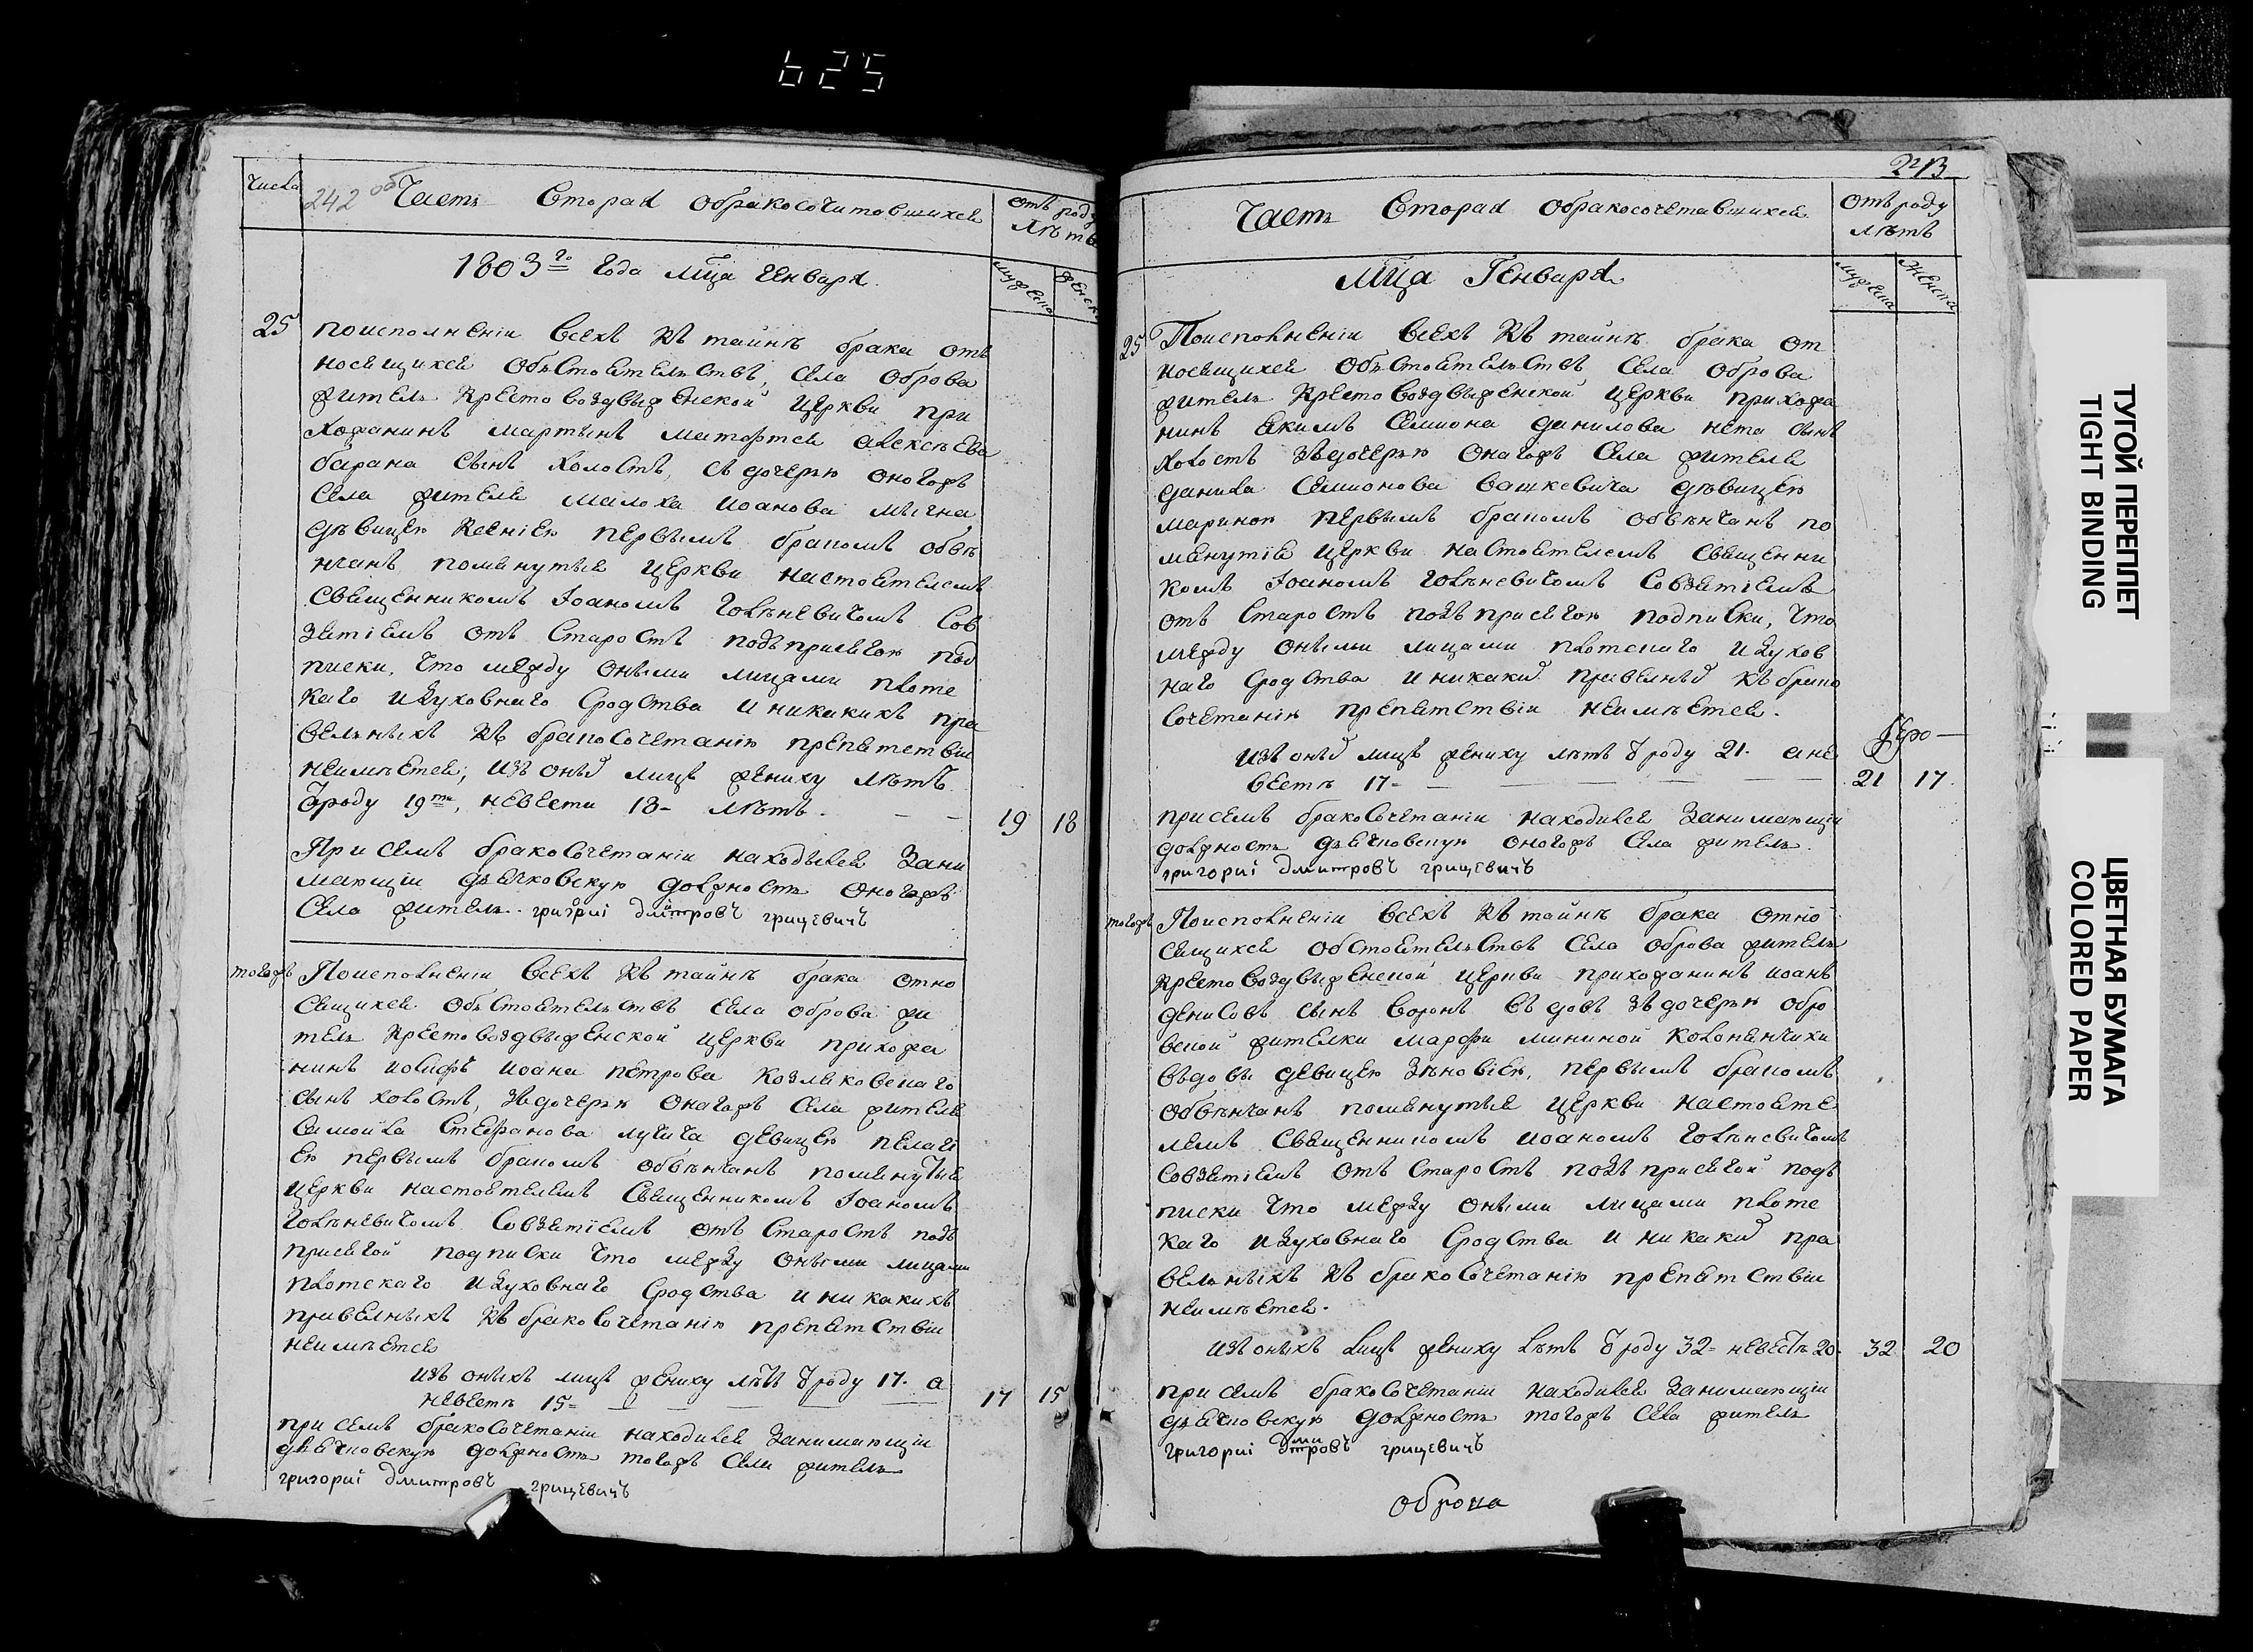 625
числа
242 об Часть Вторая обракосочитовшихся
отъ роду
лѣтъ
мужеска
женска
1803го года мца генваря
25 поисполненіи всехъ къ тайнѣ брака отъ
носящихся объстоятельствъ, села оброва
житель крестовоздвыженской церкви при
хожанинъ мартынъ маторея алексѣева
барана сынъ холостъ, съ дочерью оногожъ
села жителя иоанова
дѣвицею ксеніею первымъ бракомъ обвѣ
нчанъ помянутыя церкви настоятелемъ
священникомъ Іоаномъ голѣневичомъ Сов
зятіемъ отъ старостъ подъ присягою под
писки, что между оными лицами плотс
каго идуховнаго сродства иникакихъ пра
вельныхъ къ бракосочетанію препятствіи
неимѣется; изъ оных лицъ жениху лѣтъ
от роду 19ти, невести 18- лѣтъ. 19 18
При семъ бракосочетаніи находился зани
мающіи дьячковскую должность оногожъ
села житель григориі дмитровъ грицевичъ
тогожъ Поисполненіи всехъ къ тайнѣ брака отно
сящихся объстоятельствъ села оброва жи
тель крестовоздвыженской церкви прихожа
нинъ иосифъ иоана петрова козляковскаго
сынъ холостъ, здочерью оногожъ села жителя
самойла стефанова лучича девицею пелаги
ею первымъ бракомъ обвѣнчанъ помянутыя
церкви настоятелемъ Священникомъ Іоаномъ
голѣневичомъ Совзятіемъ отъ Старостъ подъ
присягой подписки что между оными лицами
плотскаго идуховнаго сродства иникакихъ
правелныхъ къ бракосочетанію препятствіи
неимѣется
изъ оныхъ лицъ жениху лѣтъ от роду 17. а
невестѣ 15= 17 15
при семъ бракосочетаніи находился занимающіи
дьячковскую должность тогожъ села житель
григориі дмитровъ грицевичъ
243
Часть Вторая обракосочетавшихся
отъ роду
лѣтъ
мужеска
женска
мца Генваря
25 Поисполненіи всехъ къ тайнѣ брака от
носящихся объстоятельствъ села оброва
житель крестовоздвыженской церкви прихожа
нинъ якимъ семиона данилова нета сынъ
холостъ здочерью оногожъ села жителя
данила семионова вашкевича дѣвицею
мариною первымъ бракомъ обвѣнчанъ по
мянутія церкви настоятелемъ священни
комъ Іоаномъ голѣневичомъ совзятіемъ
отъ старостъ подъ присягою подписки, что
между оными лицами плотскаго идухов
наго сродства иникаких правелных къ брако
сочетанію препятствіи неимѣется.
изъ оных лицъ жениху лѣтъ от роду 21. а не
вестѣ 17- 21 17
присемъ бракосочетаніи находился занимающіи
должность дьячковскую оногожъ села житель
григориі дмитровъ грицевичъ
тогожъ Поисполненіи всехъ къ тайнѣ брака отно
сящихся обстоятельствъ села оброва житель
крестовоздвыженской церкви прихожанинъ иоанъ
денисовъ сынъ воронъ вдовъ здочерью обро
вской жителки марфи мининой колонянчихи
въдовы девицею зѣновіею, первымъ бракомъ
обвѣнчанъ помянутыя церкви настояте
лемъ священникомъ иоаномъ голѣневичомъ
Совзятіемъ отъ старостъ подъ присягой подъ
писки что между оными лицами плотс
каго идуховнаго сродства и никаких пра
велныхъ къ бракосочетанію препятствіи
неимѣется.
изъ оныхъ лицъ жениху лѣтъ от роду 32= невестѣ 20. 32 20
при семъ бракосочетаніи находился занимающіи
дьячковскую должность тогожъ села житель
григориі дмитровъ грицевичъ
оброва
ТУГОЙ ПЕРЕПЛЕТ
TIGHT BINDING
ЦВЕТНАЯ БУМАГА
COLORED PAPER